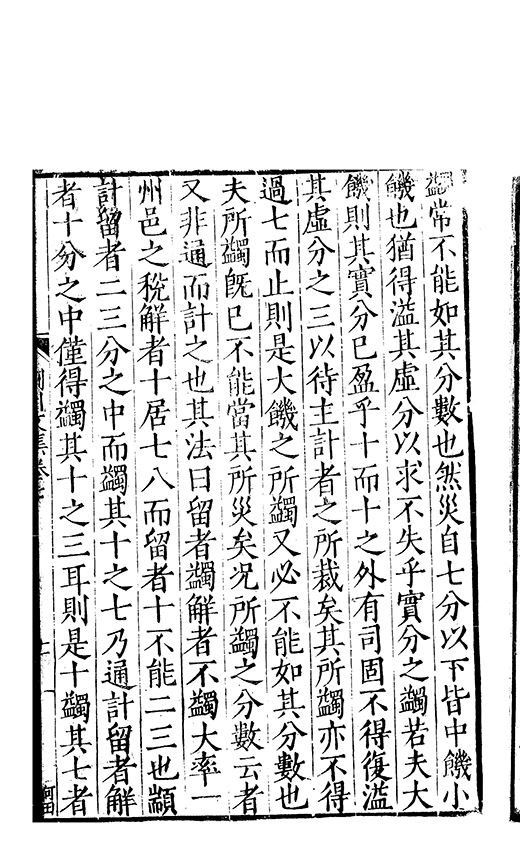 蠲常不能如其分數也然災自七分以下皆中饑小
饑也猶得溢其虛分以求不失乎實分之蠲若夫大
饑則其實分已盈乎十而十之外有司固不得復溢
其虛分之三以待主計者之所裁矣其所蠲亦不得
過七而止則是大饑之所蠲又必不能如其分數也
夫所蠲旣已不能當其所災矣况所蠲之分數云者
又非通而計之也其法曰留者蠲解者不蠲大率一
州邑之稅解者十居七八而留者十不能二三也顓
計留者二三分之中而蠲其十之七乃通計留者解
者十分之中僅得蠲其十之三耳則是十蠲其七者
荆川文集卷七